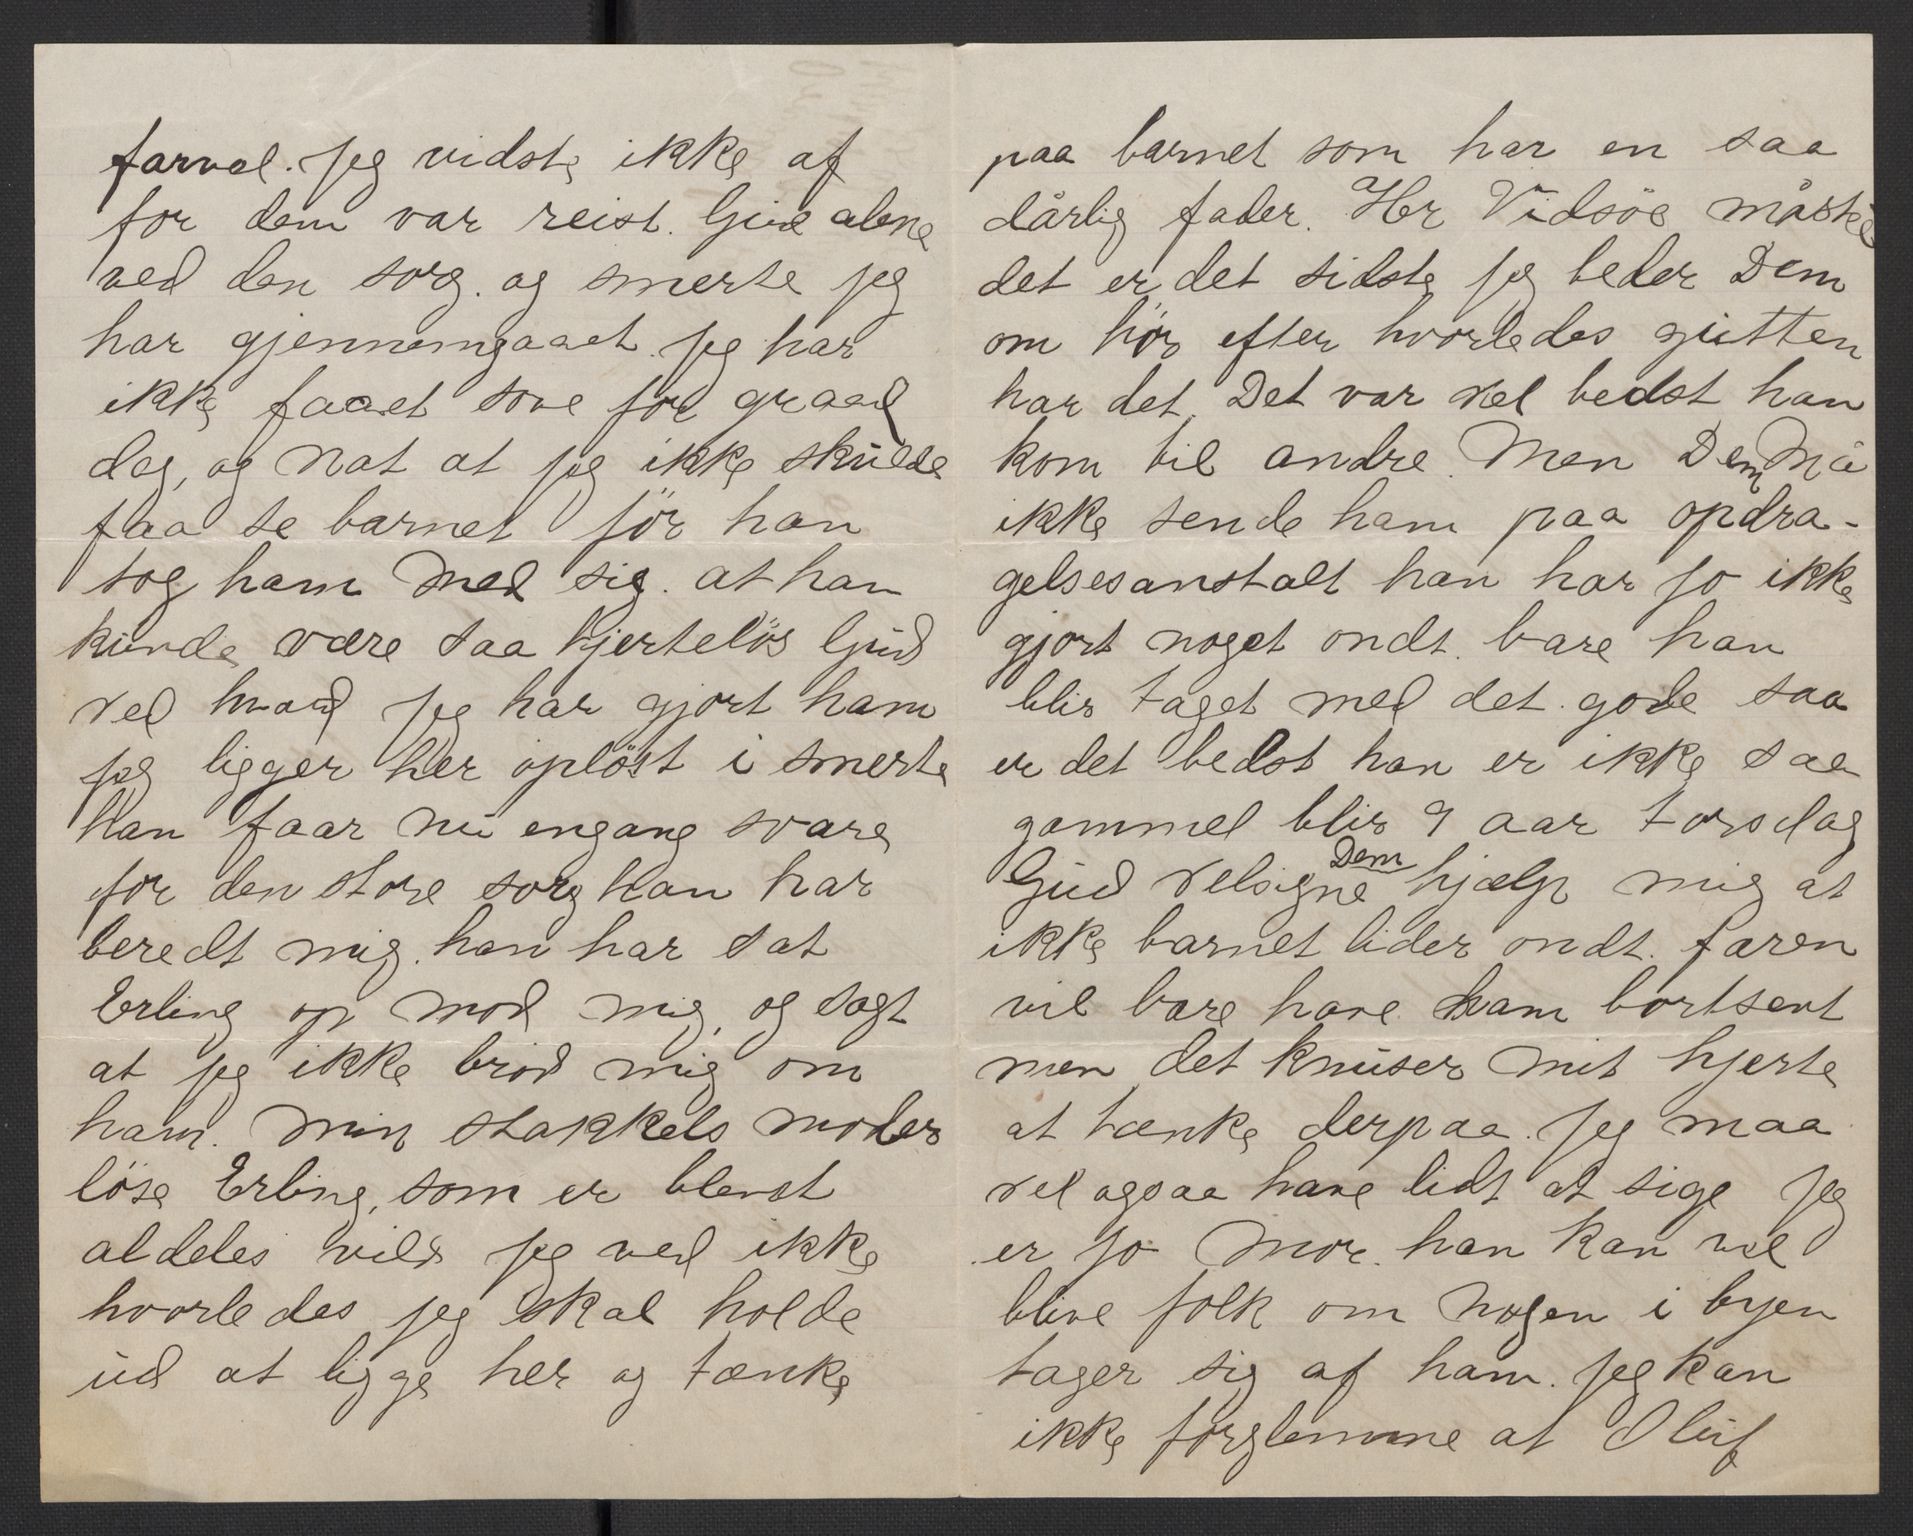 farvel. Jeg vidste ikke af
for dem var reist. Gud alene
ved den sorg. og smerte jeg
har gjennemgaaet. Jeg har
ikke faaet sove for graad
dag, og Nat at jeg ikke skulde
faa se barnet för han
tog ham Med sig. at han
kunde være saa hjertelös Gud
ved hvad jeg har gjort ham
jeg ligger her oplöst i smerte
han faar nu engang svare
for den store sorg han har
beredt mig. han har sat
Erling op mod mig, og sagt
at jeg ikke bröd mig om
ham. Min stakkels moder
löse Erling, som er blevet
aldeles vild jeg ved ikke
hvorledes jeg skal holde
ud at ligge her og tænke
paa barnet som har en saa
dårlig fader. Her Vidsöe måske
det er det sidste jeg beder Dem
om hör efter hvorledes gutten
har det. Det var vel bedst han
kom til andre. Men Dem Må
ikke sende ham paa opdra-
gelsesanstalt han har jo ikke
gjort noget ondt. bare han
blir taget med det gode saa
er det bedst han er ikke saa
gammel blir 9 aar torsdag
Gud velsigne Dem hjælp mig at
ikke barnet lider ondt. faren
vil bare have ham bortsent
men det knuser mit hjerte
at tænke derpaa. Jeg maa
vel ogsaa have lidt at sige jeg
er jo Mor. han kan vel
blive folk om Nogen i byen
tager sig af ham. Jeg kan
ikke forglemme at Oluf